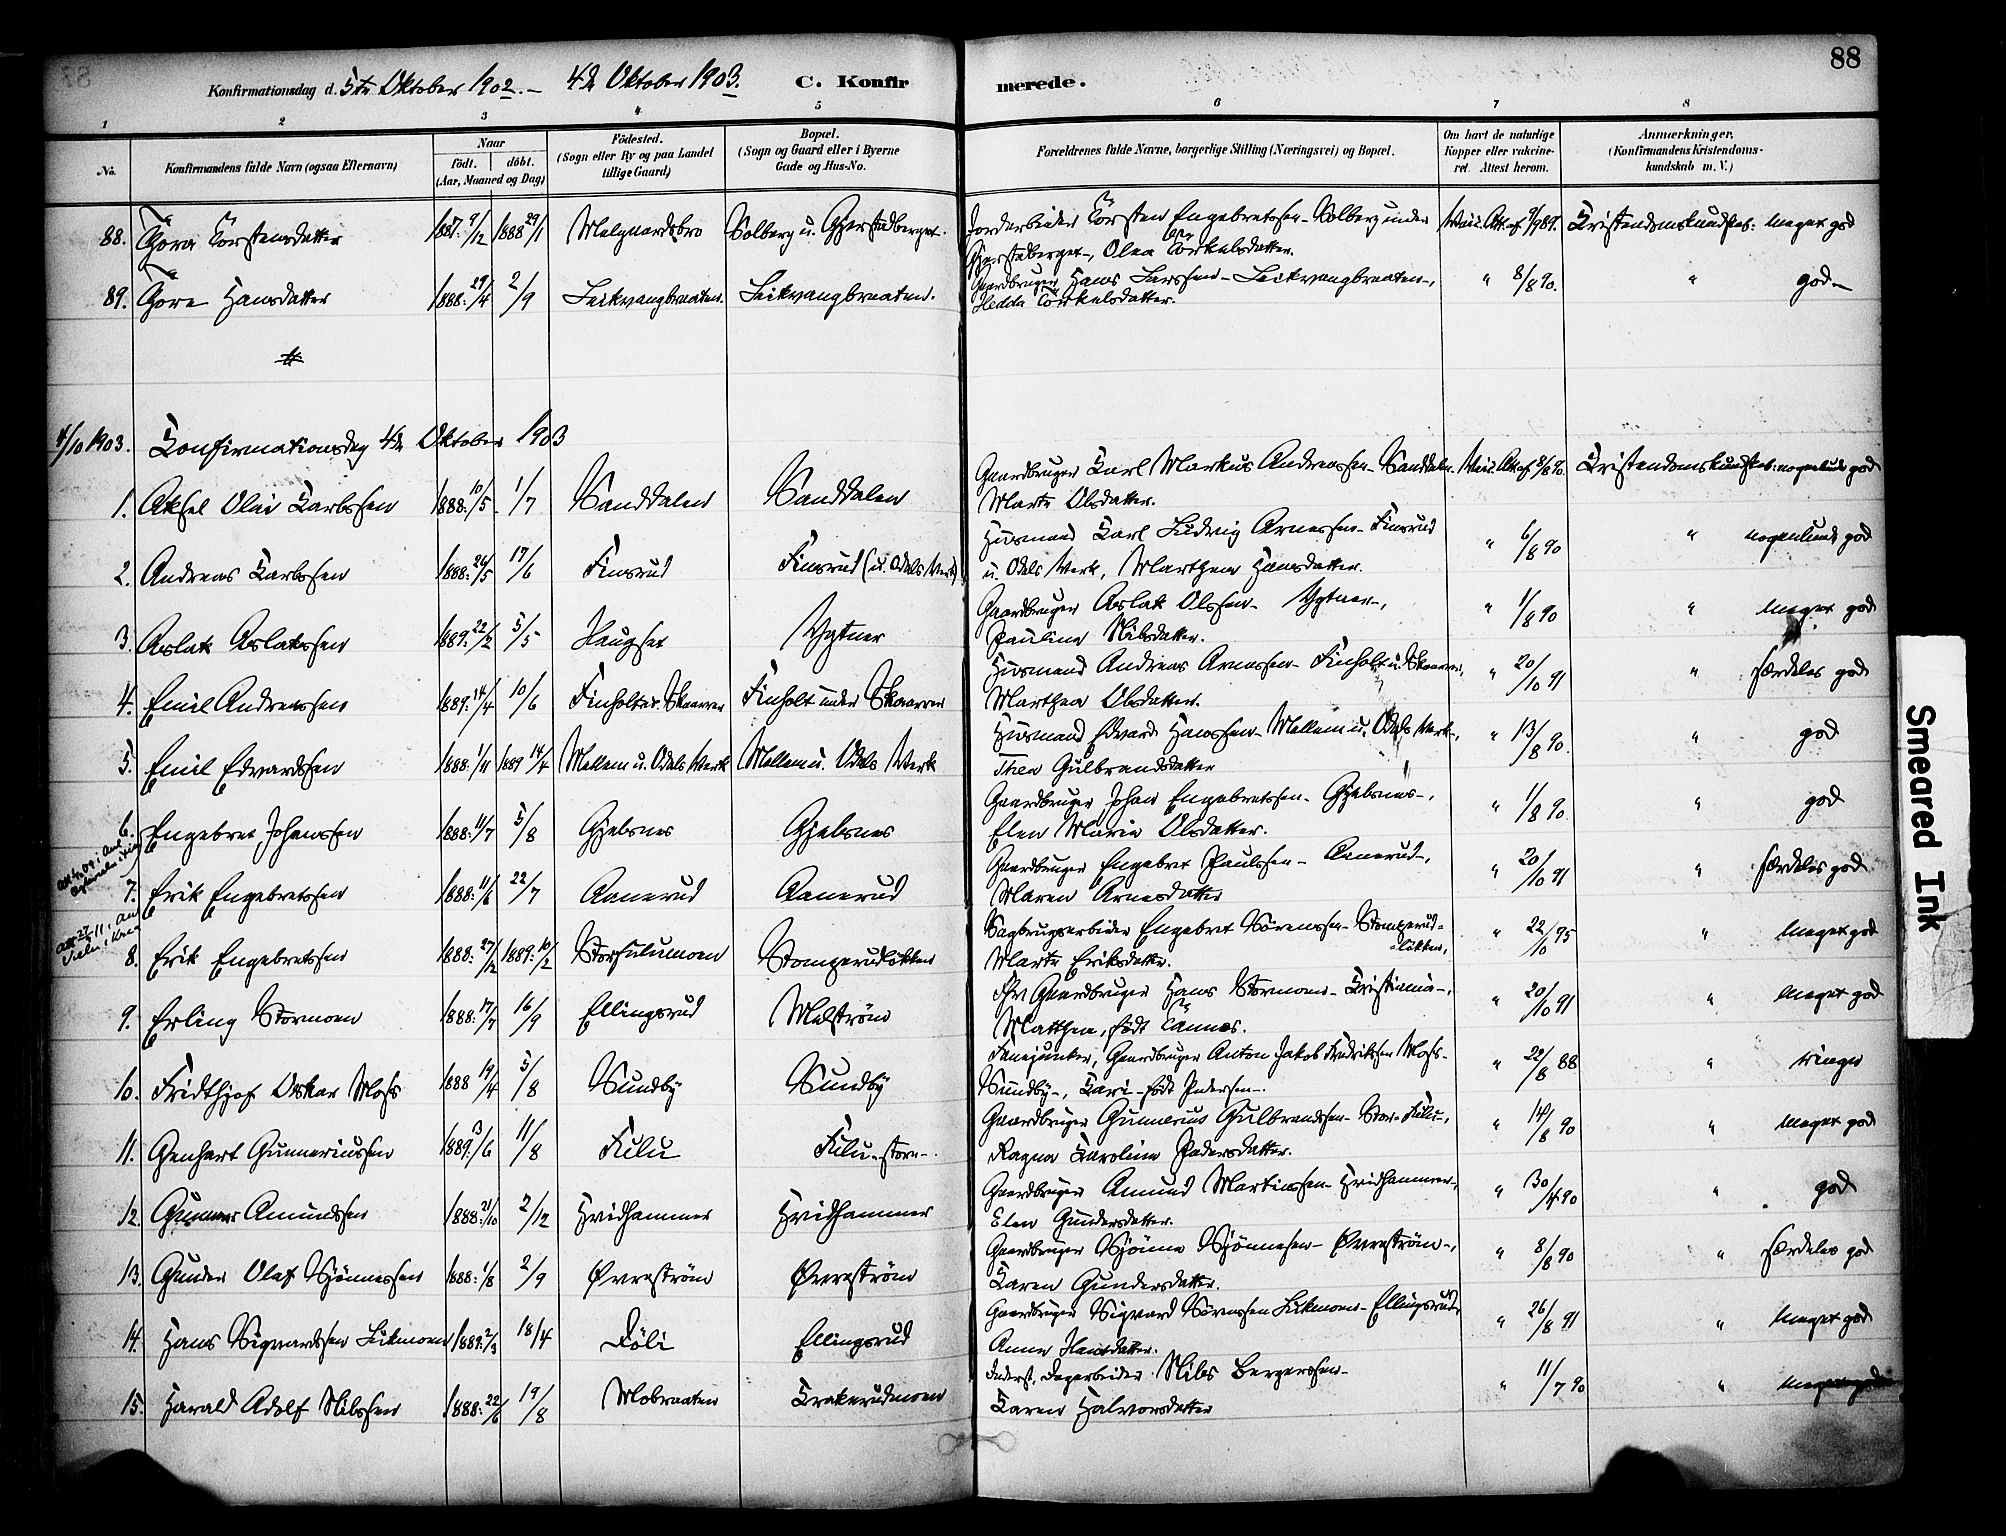 88
Konfirmationsdag d. 5te Oktober 1902. – 4de Oktober 1903. C. Konfirmerede.
1 2 3 4 5 6 7 8
No. Konfirmandens fulde Navn (ogsaa Efternavn) Naar födt. döbt. (Aar, Maaned og Dag) Födested. (Sogn eller By og paa Landet tillige Gaard) Bopæl. (Sogn og Gaard eller i Byerne Gade og Hus-No. Forældrenes fulde Navne, borgerlige Stilling (Næringsvei) og Bopæl. Om havt de naturlige Kopper eller vakcineret. Attest herom. Anmærkninger. (Konfirmandens Kristendomskundskab m. V.)
88. Thora Torstensdatter 1887. 9/12 1888 29/1 Melgaardsbro Solberg u. Gjerstadberget. Jordarbeider Torsten Engebretssen – Solberg under Gjerstadberget –, Olea Torkelsdatter. Vacc. Att. af 9/9 89. Kristendomskundskab: meget god
89. Thora Hansdatter 1888. 29/4 2/9 Leikvangbraaten. Leikvangbraaten. Gaardbruger Hans Larssen – Leikvangbraaten –, Hedda Torkelsdatter. " 8/8 90. " god –
4/10 1903. Confirmationsdag 4de Oktober 1903
1. Aksel Olai Karlssen 1888. 10/5 1/7 Sanddalen Sanddalen Gaardbruger Karl Markus Andreassen – Sanddalen. Marte Olsdatter. Vacc. Att. af 8/8 90. Kristendomskundskab: nogenlunde god
2. Andreas Karlssen 1888. 24/5 17/6 Finsrud Finsrud (u. Odals Værk) Husmand Karl Ludvig Arnessen – Finsrud u. Odals Værk, Marthea Hansdatter. " 6/8 90 " nogenlunde god
3. Aslak Aslakssen 1889. 22/2 5/5 Haugset Ygtner Gaardbruger Aslak Olssen – Ygtner –, Pauline Nilsdatter. " 1/8 90 " meget god
4. Emil Andreassen 1889. 14/4 10/6 Finholt u. Skaarer Finholt under Skaarer Husmand Andreas Arnessen – Finholt u. Skaarer, Marthea Olsdatter. " 20/10 91 " særdeles god
5. Emil Edvardssen 1888. 1/11 1889 14/4 Mellem u. Odals Værk Mellem u. Odals Værk Husmand Edvard Hanssen – Mellem u. Odals Værk –, Thea Gulbrandsdatter " 13/8 90. " god
6. Engebret Johanssen 1888. 11/7 5/8 Gjelsnes Gjelsnes Gaardbruger Johan Engebretssen – Gjelsnes –, Elen Marie Olsdatter. " 1/8 90. " god
7. Erik Engebretssen 1888. 11/6 22/7 Aanerud Aanerud Gaardbruger Engebret Paulssen – Aanerud –, Maren Arnesdatter " 20/10 91 " særdeles god
8. Erik Engebretssen 1888. 27/12 1889. 10/2 Storfulumoen Stomperudløkken Sagbrugsarbeider Engebret Sørenssen – Stomperudløkken, Marte Eriksdatter. " 22/10 95 " meget god
9. Erling Stormoen 1888. 17/7 16/9 Ellingsrud Malstrøm Fhv. Gaardbruger Hans Stormoen – Kristiania –, Matthea, født Tannæs. " 20/10 91 " meget god
10. Fridthjof Oskar Moss 1888 19/4 5/8 Sundby Sundby Fanejunker, Gaardbruger Anton Jakob Fredrikssen Moss – Sundby –, Kari – født Pedersen –. " 22/8 88 " ringe
11. Genhart Gunneriussen 1889. 3/6 11/8 Fulu Fulu – store –. Gaardbruger Gunnerius Gulbrandssen – Store-Fulu –, Ragna Karoline Pedersdatter. " 14/8 90 " meget god
12. Gunner Amundssen 1888. 21/10 2/12 Hvidhammer Hvidhammer Gaardbruger Amund Martinssen – Hvidhammer –, Elen Gundersdatter. " 30/4 90 " god
13. Gunder Olaf Sjønnessen 1888. 1/8 2/9 Øverstrøm Øverstrøm Gaardbruger Sjønne Sjønnesen – Øverstrøm –, Karen Gundersdatter. " 8/8 90 " særdeles god
14. Hans Sigvardssen Lukmoen 1889. 2/3 18/4 Döli Ellingsrud Gaardbruger Sigvard Sørenssen Lukmoen – Ellingsrud, Anne Hansdatter. " 26/8 91 " meget god
15. Harald Adolf Nilssen 1888. 22/6 19/8 Mobraaten Krakerudmoen Inderst, Dagarbeider Nils Bergerssen – Karen Halvorsdatter " 11/7 90 " meget god
Smeared Ink